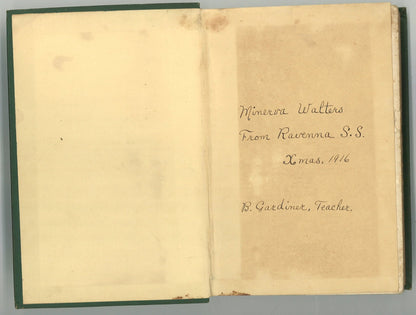 Minerva Walters
From Ravenna S.S.
Xmas, 1916
B. Gardiner, Teacher.